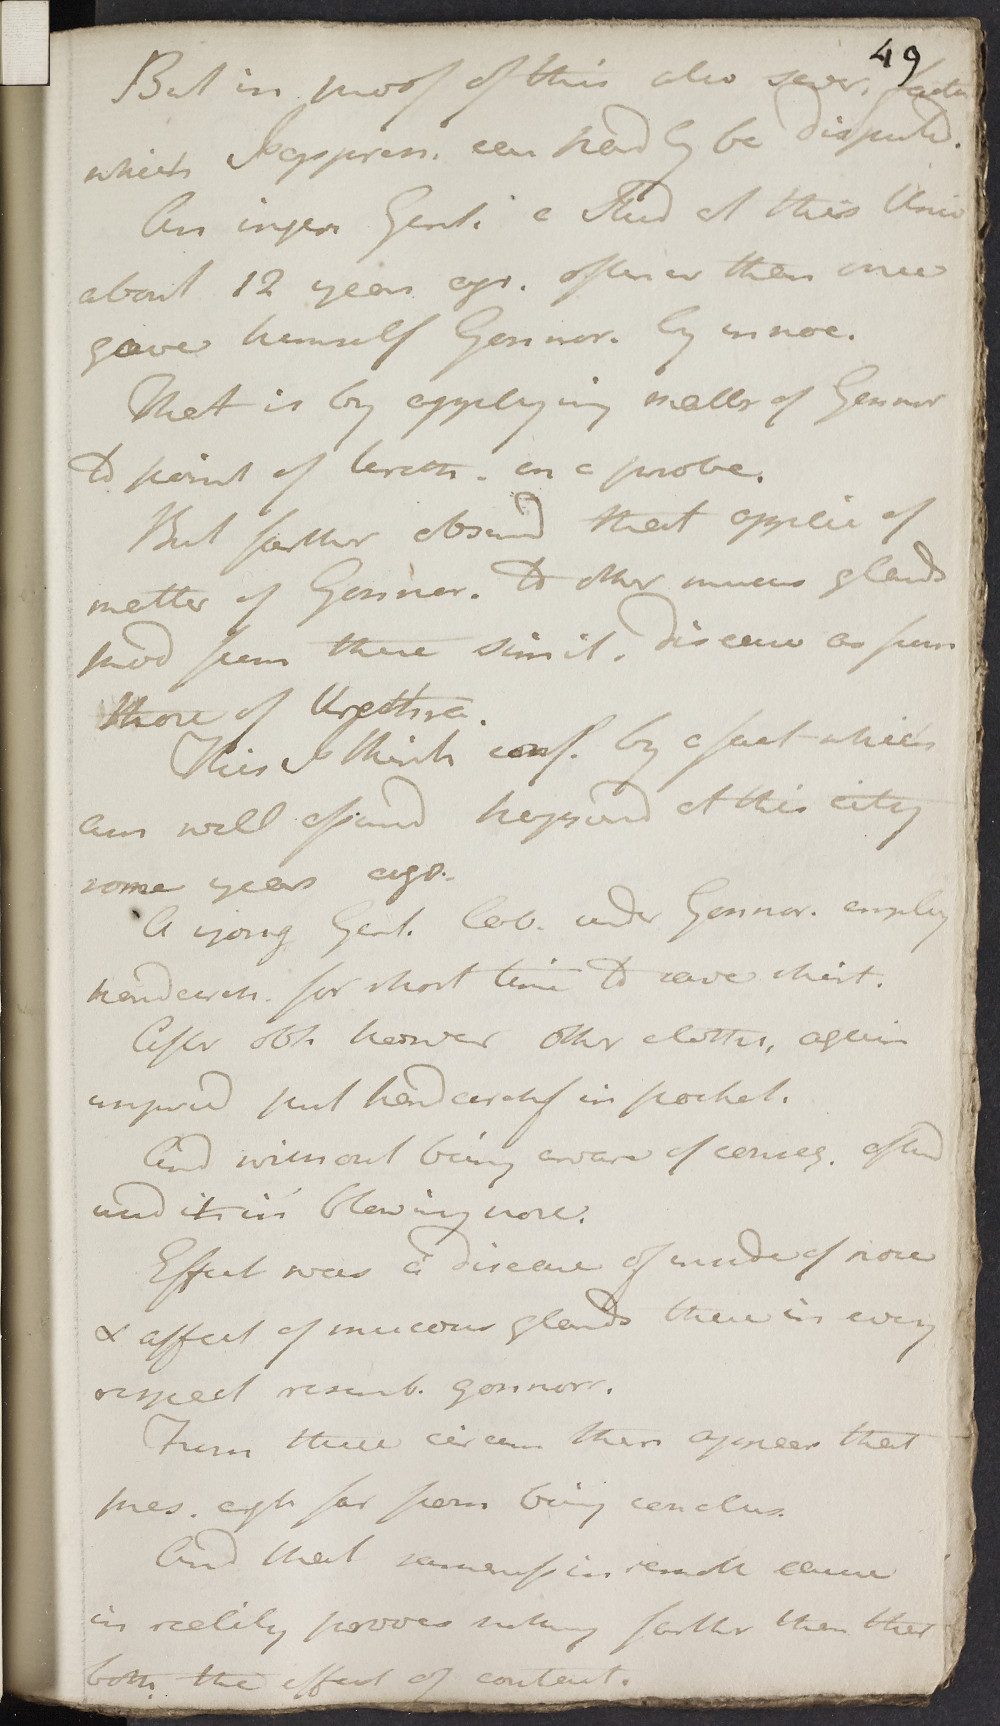 49
But in proof of this also sever. facts
which I appreh. can hardly be disputed.
An ingen Gent. a Stud at this Univ
about 12 years ago. oftener then once
gave himself Gonnor. by innoc.
That is by applying matter of Gonnor
to point of Ureth. on a probe.
But farther observd that applic of
matter of Gonnor. to other mucus glands
prod from these simil. disease as from
those of Urethra.
This I think conf. by a fact which
am well assured happend at this city
some years ago.
A young Gent. lab. under Gonnor. employ
handcerch. for short time to save shirt.
After obt. however other clothes, again
unprud put handcerchf in pocket.
And without being aware of conseq. afterd
used it in blowing nose.
Effect was a disease of inside of nose
& affect of mucous glands there in every
respect resemb. gonnorr.
From these circum then appears that
pres. argt. far from being conclus.
And that sameness in remote cause
in reality proves nothing farther than that
both the effect of contact.